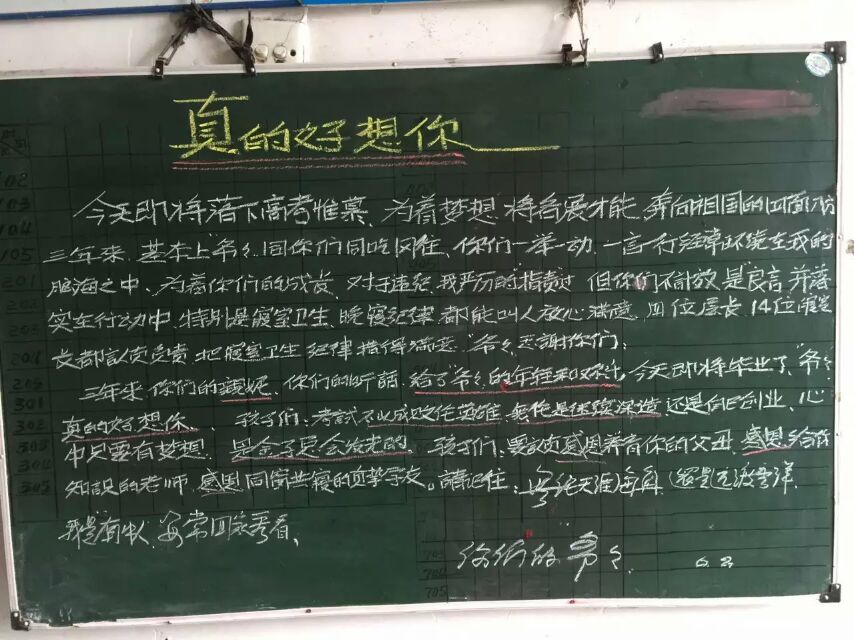 真的好想你
今天即将落下高考惟幕、为着梦想 将各展才能、奔向祖国的四面八方
三年来、基本上爷爷同你们同吃同住、你们一举一动、一言一行经常环绕在我的
脑海之中、为着你们的成长、对于违纪、我严厉的指责 但你们不计放 是良言 并落
实在行动中、特别是寝室卫生、晚寝纪律 都能叫人放心满意 四位层长 14位寝室
长都认负责 把寝室卫生 纪律搞得满意 爷爷感谢你们、
三年来 你们的 你们的听话 给了爷爷的年轻和欢 今天即将毕业了、爷爷
真的好想你、 孩子们、考试不以成败论英雄 无论是继续深造 还是自己创业、心
中只要有梦想、是金子总会发光的、孩子们、要 感恩养育你的父母、感恩给你
知识的老师、感恩同窗共寝的真挚学友。请记住：无论天涯海角 还是 漂洋
有 人、要常回家看看、
你们的爷爷
102
103
104
105
201
202
203
204
205
301
302
303
304
305
703
704
705